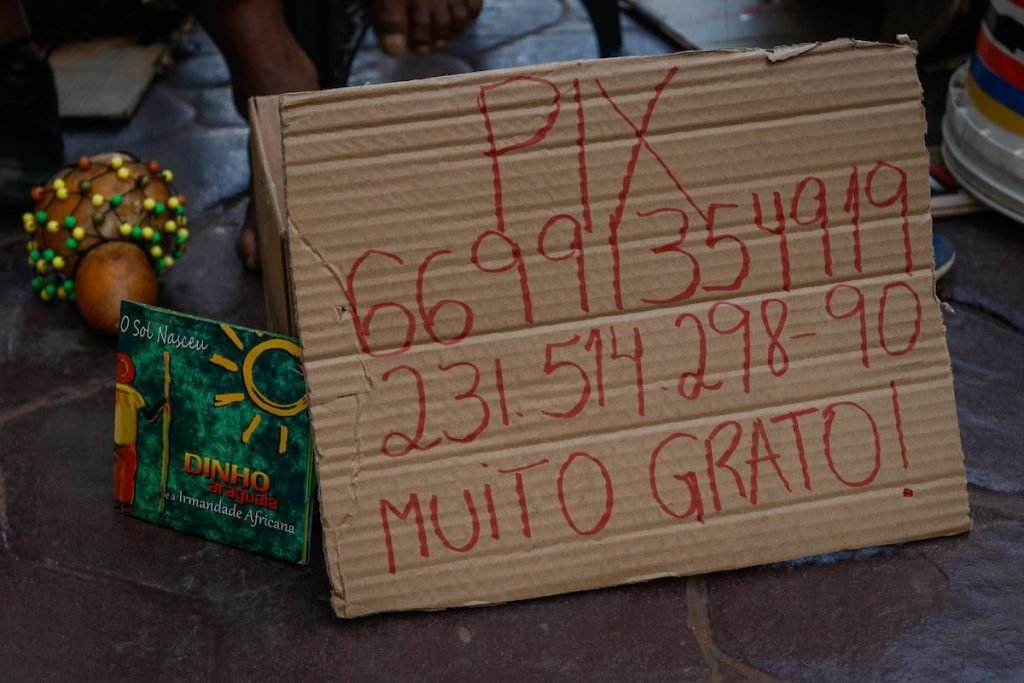 PIX
66991354919
231.514.298-90
MUITO GRATO!
O Sol Nasceu
DINHO
araguaia
e a Irmandade Africana